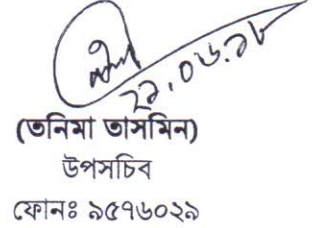 ২১.০৬.১৮
(তনিমা তাসমিন)
উপসচিব
ফোনঃ ৯৫৭৬০২৯